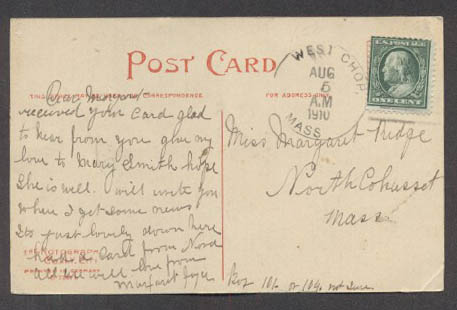 POST CARD
THIS SPACE FOR CORRESPONDENCE.
FOR ADDRESS ONLY.
WEST CHOP
AUG
5
A.M
1910
MASS.
U.S. POSTAGE
ONE CENT
Dear
received your card glad
to hear from you give my
love to Mary Smith hope
she is well. will write you
when I get some news
Its just lovely down here
had a card from
all are well love from
Margaret
Miss Margaret
North Cohasset
Mass.
Box 101 or 109 not sure